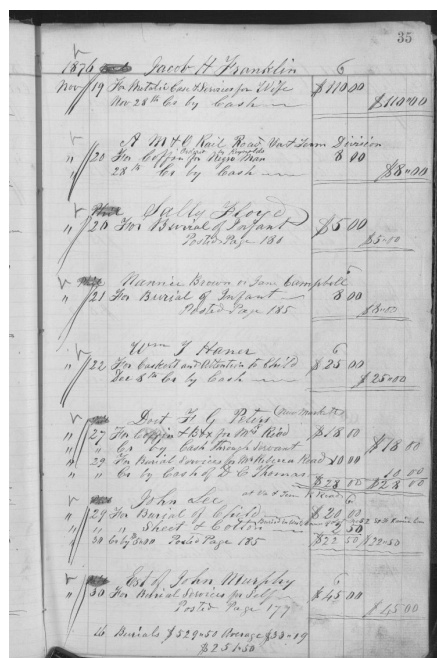 35
1876 Jacob H Franklin 6
Nov 19 For Metalic Case & Services for Wife $110 00
Nov 28th Cr by Cash $110.00
A M & O Rail Road Va & Tenn Division
" 20 For Coffin for Negro Man 8 00
28th Cr by Cash $8.00
Sally Floyd
" 20 For Burial of Infant $5 00
Posted Page 180 $5.00
Nannie Brown or Jane Campbell
" 21 For Burial of Infant 8 00
Posted Page 185 $8.00
Wm T Haner 6
" 22 For Caskett and Attention to Child $25 00
Dec 8th Cr by Cash $25.00
Doct F G Peters (New Market)
" 27 For Coffin & Box for Mrs Reed $18 00
" " Cr by Cash through Servant $18 00
" 29 For Burial Services for Read 10 00
" " Cr by Cash of D C Thomas 10 00
$28 00 $28 00
John Lee at Va & Tenn R Road 6
" 29 For Burial of Child $20 00
" " " Sheet & Cotton 2 50
30 Cr by Posted Page 185 $22 50 $22.50
Est of John Murphy 6
" 30 For Burial Services for Self $45 00
Posted Page 177 $45.00
16 Burials $529.50 Average $33.09
$251.50